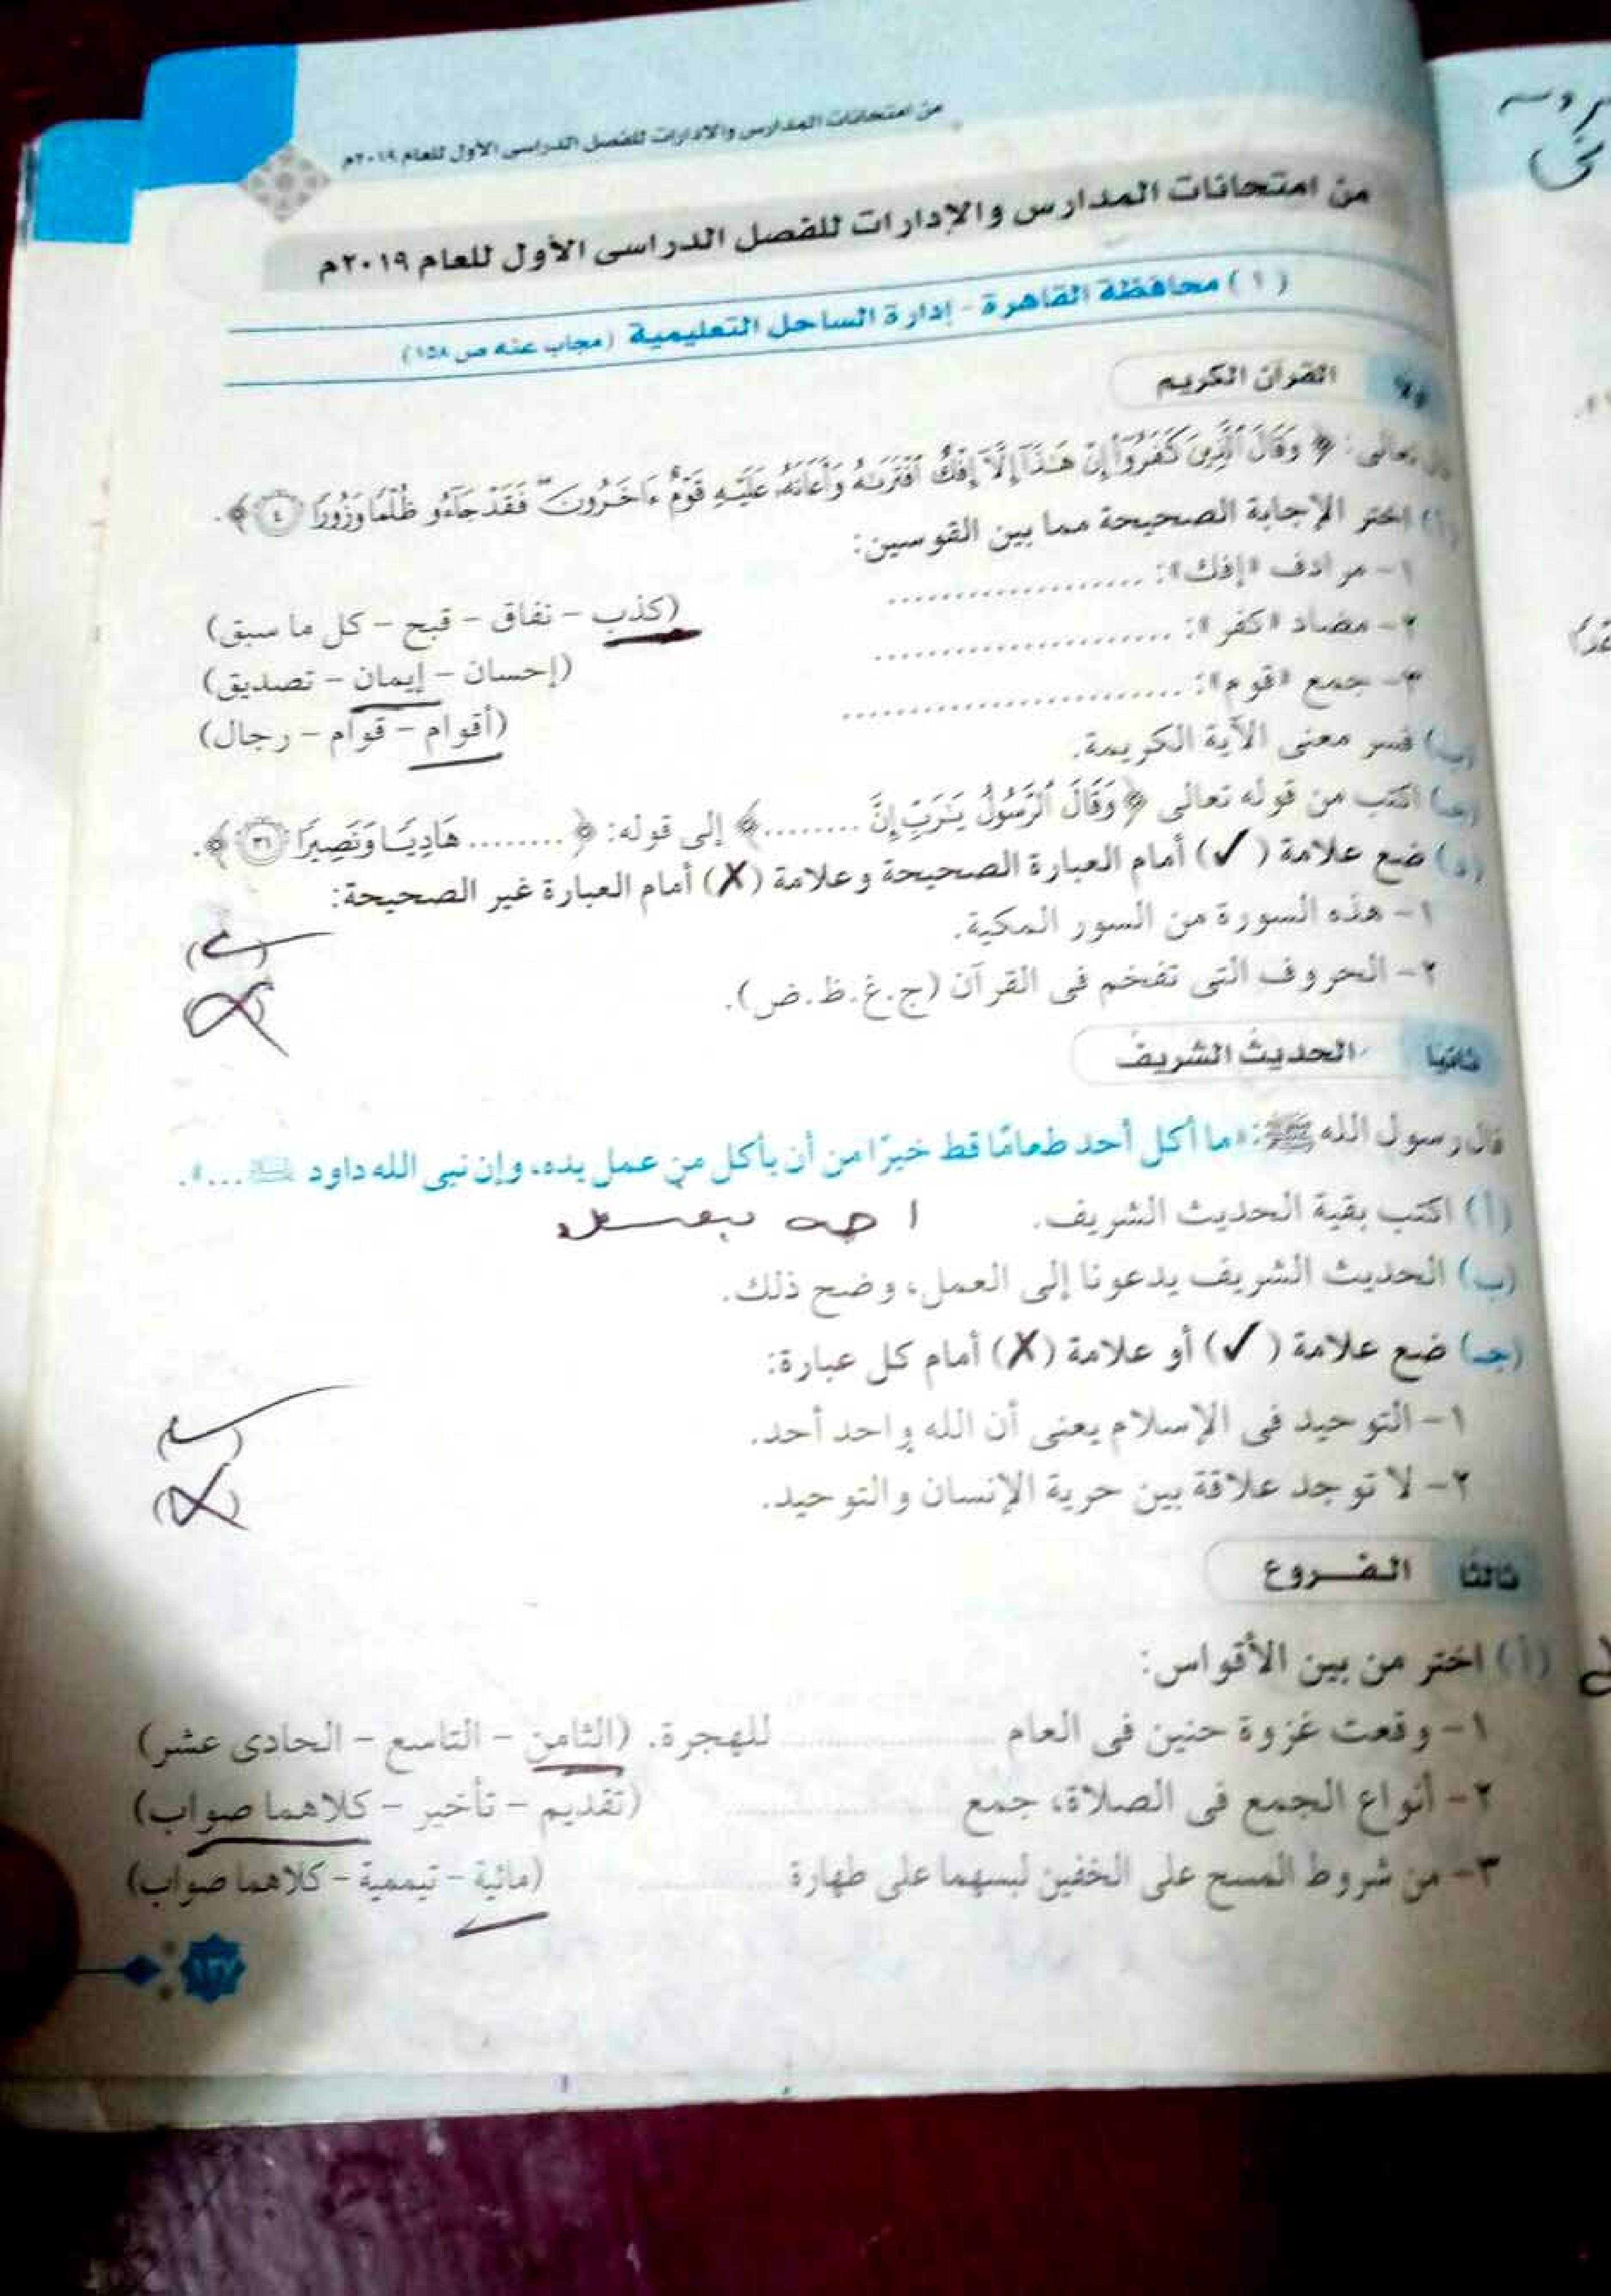 من امتحانات المدارس والإدارات للفصل الدراسى الأول للعام ٢٠١٩م
من امتحانات المدارس والإدارات للفصل الدراسى الأول للعام ٢٠١٩م
( ١ ) محافظة القاهرة - إدارة الساحل التعليمية (مجاب عنه ص ١٥٨)
القرآن الكريم
تعالى: ﴿ وَقَالَ ٱلَّذِينَ كَفَرُوٓا۟ إِنْ هَـٰذَآ إِلَّآ إِفْكٌ ٱفْتَرَىٰهُ وَأَعَانَهُۥ عَلَيْهِ قَوْمٌ ءَاخَرُونَ ۖ فَقَدْ جَآءُو ظُلْمًا وَزُورًا ٤ ﴾.
(أ) اختر الإجابة الصحيحة مما بين القوسين:
١- مرادف «إفك»: .................... (كذب - نفاق - قبح - كل ما سبق)
٢- مضاد «كفر»: .................... (إحسان - إيمان - تصديق)
٣- جمع «قوم»: .................... (أقوام - قوام - رجال)
(ب) فسر معنى الآية الكريمة.
(جـ) اكتب من قوله تعالى ﴿ وَقَالَ ٱلرَّسُولُ يَـٰرَبِّ إِنَّ ......... ﴾ إلى قوله: ﴿ ......... هَادِيًا وَنَصِيرًا ٣١ ﴾.
(د) ضع علامة (✓) أمام العبارة الصحيحة وعلامة (✗) أمام العبارة غير الصحيحة:
١- هذه السورة من السور المكية. (✓)
٢- الحروف التى تفخم فى القرآن (ج.غ.ظ.ض). (✗)
ثانيًا الحديث الشريف
قال رسول الله ﷺ: «ما أكل أحد طعامًا قط خيرًا من أن يأكل من عمل يده، وإن نبى الله داود ...».
(أ) اكتب بقية الحديث الشريف.
(ب) الحديث الشريف يدعونا إلى العمل، وضح ذلك.
(جـ) ضع علامة (✓) أو علامة (✗) أمام كل عبارة:
١- التوحيد فى الإسلام يعنى أن الله واحد أحد. (✓)
٢- لا توجد علاقة بين حرية الإنسان والتوحيد. (✗)
ثالثًا الفروع
(أ) اختر من بين الأقواس:
١- وقعت غزوة حنين فى العام .................... للهجرة. (الثامن - التاسع - الحادى عشر)
٢- أنواع الجمع فى الصلاة، جمع .................... (تقديم - تأخير - كلاهما صواب)
٣- من شروط المسح على الخفين لبسهما على طهارة .................... (مائية - تيممية - كلاهما صواب)
١٣٧